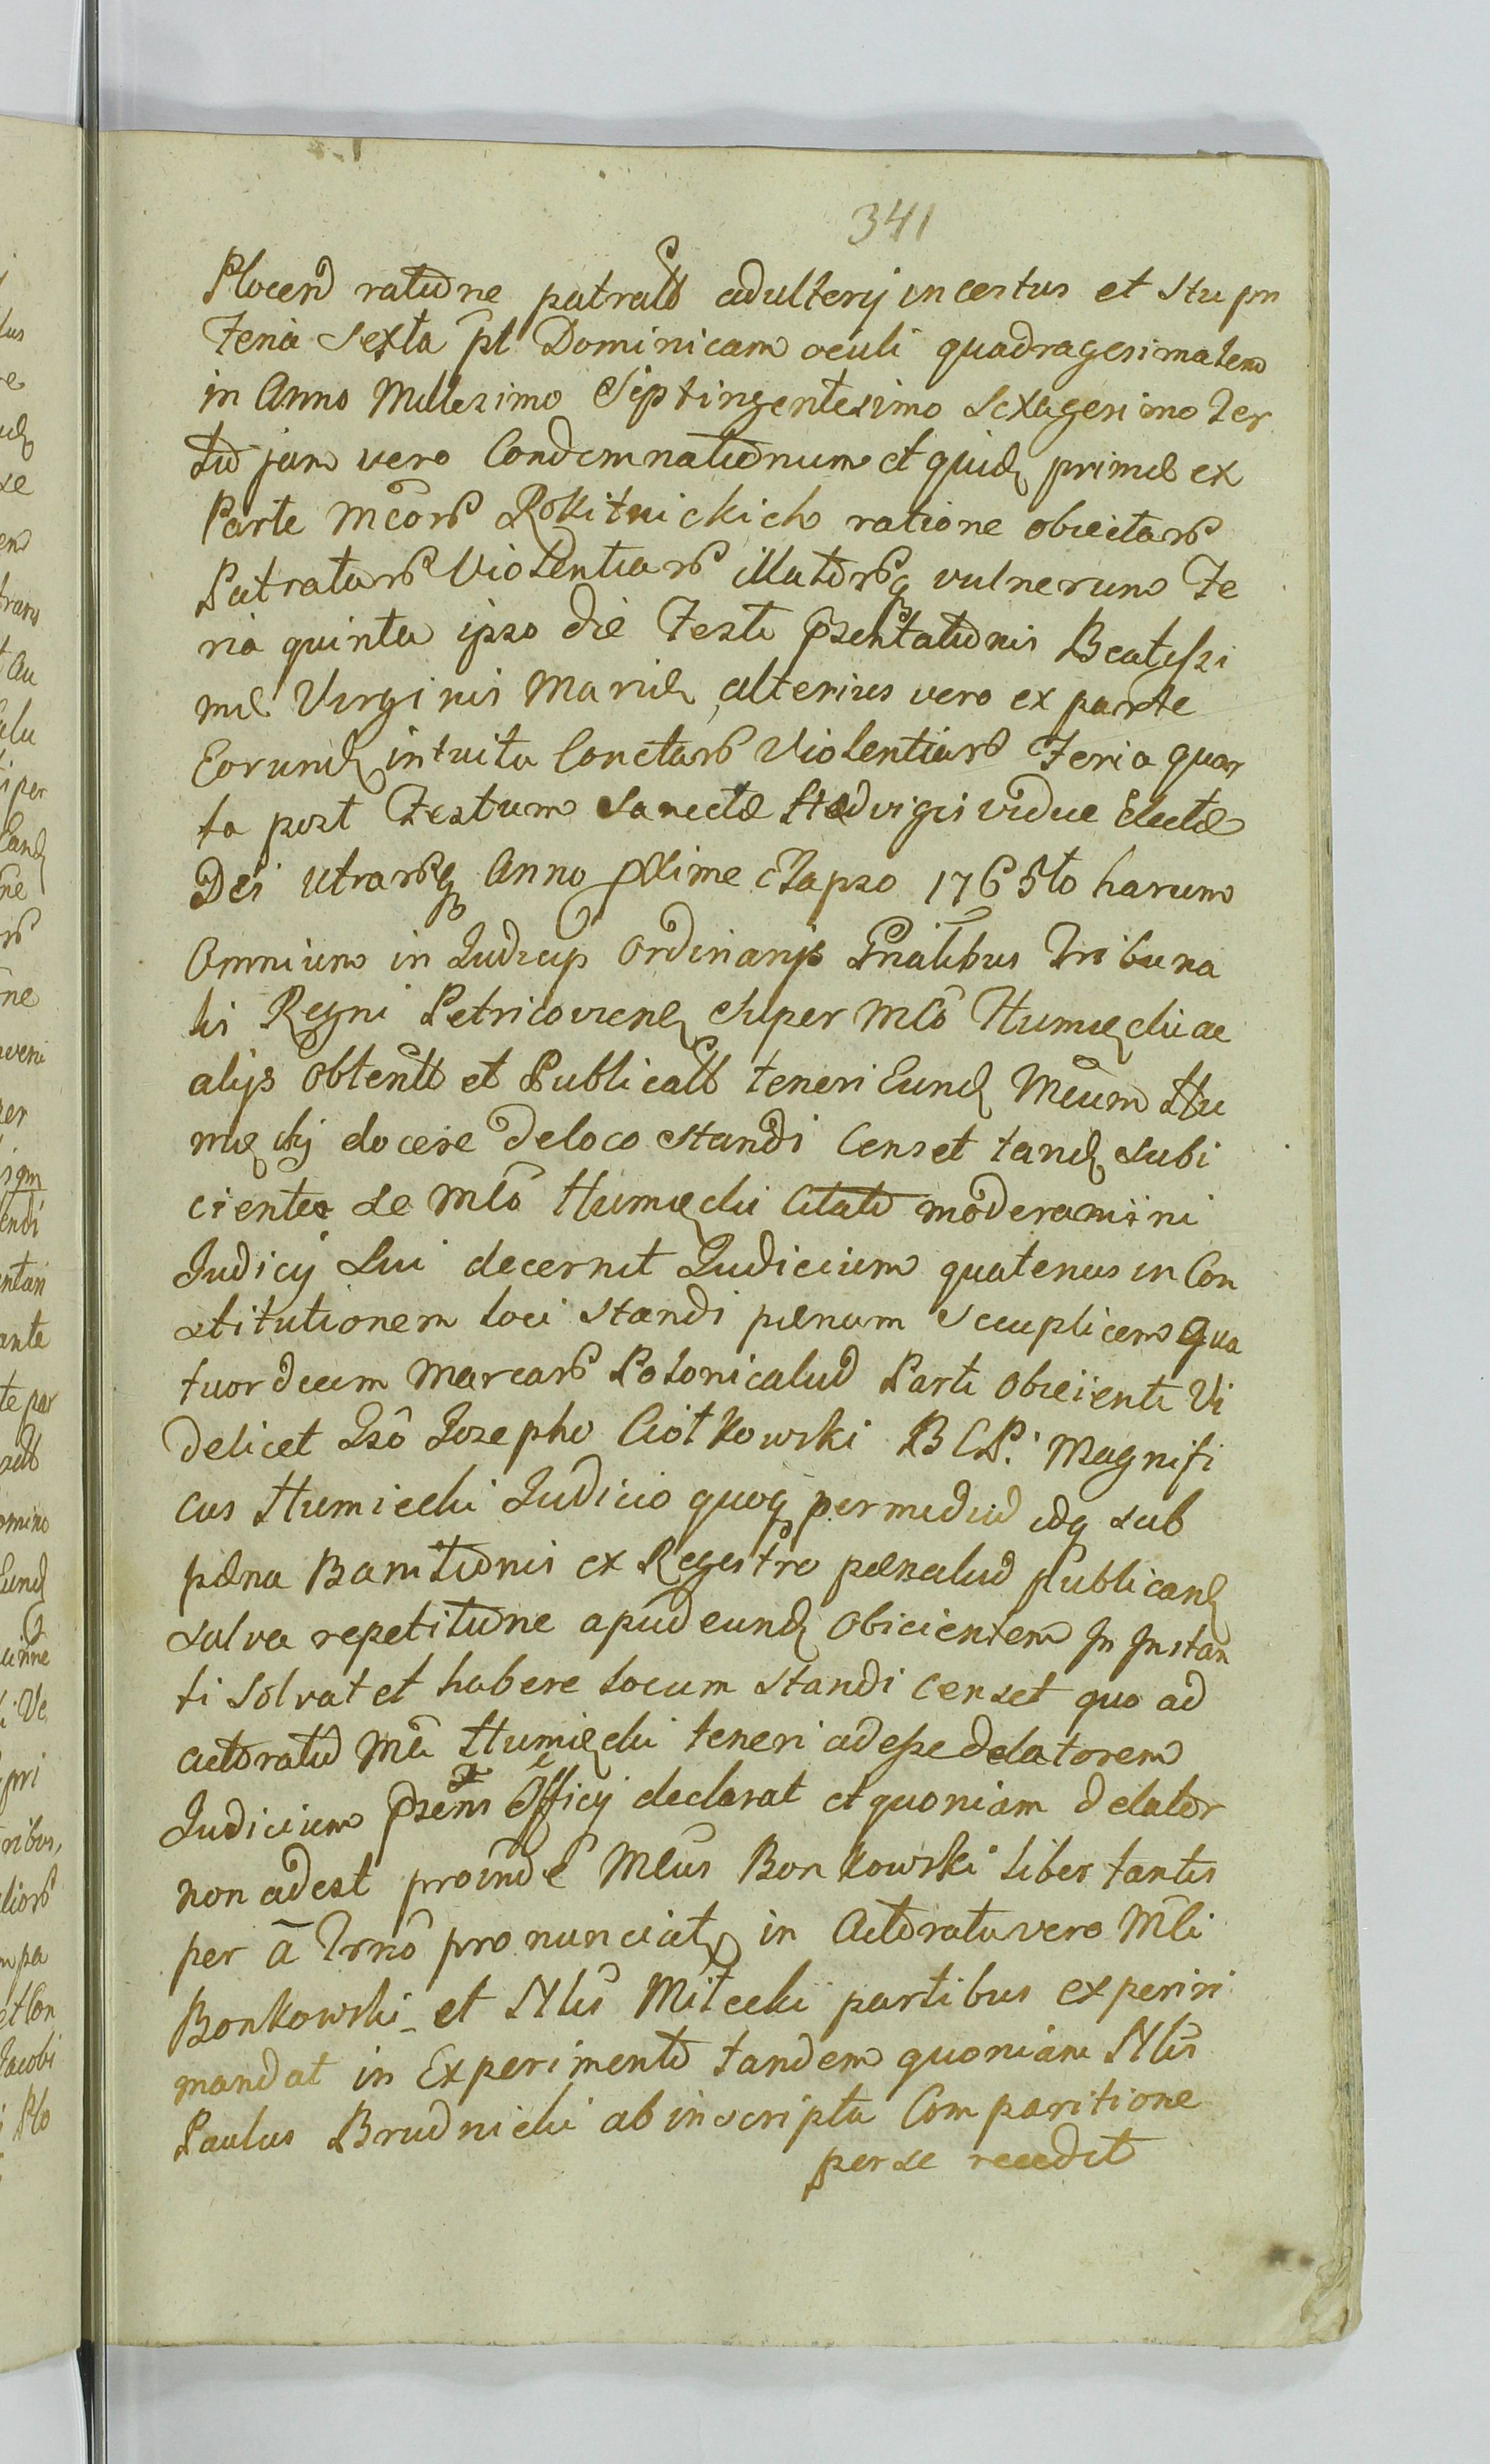 341
Plocen ratione patrati adulterij incestus et Stupri
Feria Sexta pt Dominicam oculi quadragesimalem
in Anno Millesimo Septingentesimo Sexagesimo Ter
tio jam vero Condemnationum et quid primæ ex
Parte Mcorum Rokitnickich ratione obiectarum
Patratarum Violentiarum illatorumq vulnerum Fe
ria quinta ipso die Festi Psentationis Beatissi
mæ Virginis Mariæ, alterius vero ex parte
Eorund intuitu Conctarum Violentiarum Feria quar
ta post Festum Sanctæ Hedvigis viduæ Electæ
Dei utrarumq Anno pxime Elapso 1765to harum
Omnium in Judicijs Ordinarijs Gnalibus Tribuna
lis Regni Petricovien Super Mco Humięcki ac
alijs Obtent et Publicat teneri Eund Mcum Hu
mięckij docere de loco standi Censet tand Subi
ciente se Mco Humięcki Citato moderamini
Judicij Sui decernit Judicium quatenus in Con
stitutionem loci Standi pænam Scuplicem Qua
tuordecim Marcarum Polonicaliu Parti Obicienti Vi
delicet Gso Josepho Ciotkowski B C P. Magnifi
cus Humiecki Judicio quoq per mediu idq sub
pæna Banitionis ex Regestro pænaliu Publicand
salva repetitione apud eund Obicientem In Instan
ti Solvat et habere locum standi Censet quo ad
actoratu Mci Humięcki teneri adesse delatorem
Judicium Psens Officij declarat et quoniam delator
non adest proinde Mcus Bonkowski liber tantis
per a Trno pronunciat, in Actoratu vero Mci
Bonkowski et Nlis Miłecki partibus experiri
mandat in Experimento tandem quoniam Nlis
Paulus Brudnicki ab inscripta Comparitione
per se recedit